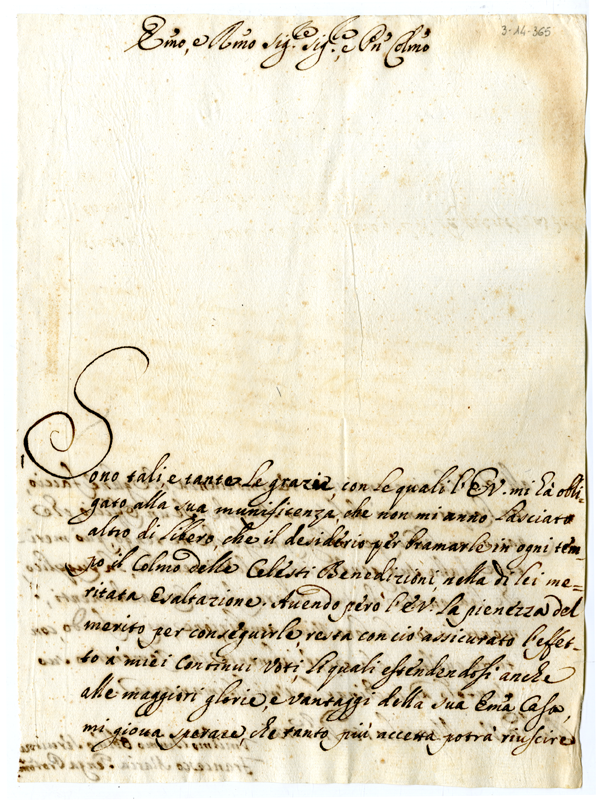 3-14-365
Emo, e Rmo Sig.re Sig.re, e Pne Colmo
Sono tali, e tante le grazie con le quali l'E.V. mi hà obli-
gato alla sua munificenza, che non mi anno lasciato
altro di libero, che il desiderio per bramarle in ogni tem-
po il Colmo delle Celesti Benedizioni nella di lei me=
ritata Esaltazione. Auendo però l'E.V. la pienezza del
merito per conseguirle, resta con ciò assicurato l'effet-
to à miei Continui Voti, li quali estendendosi anche
alle maggiori glorie, e vantaggi della sua Ema Casa,
mi gioua sperare, che tanto più accetta potrà riuscire